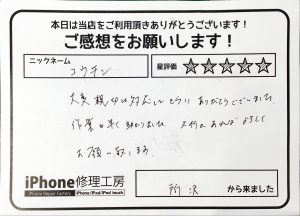 本日は当店をご利用頂きありがとうございます!
ご感想をお願いします!
ニックネーム
ユウチン
星評価
☆☆☆☆☆
大変親切な対応してもらいありがとうございました
作業も早く助かりました。又何かあればよろしく
お願い致します
iPhone修理工房
iPhone Repair Factory
iPhone/iPad/iPod touch
所沢
から来ました